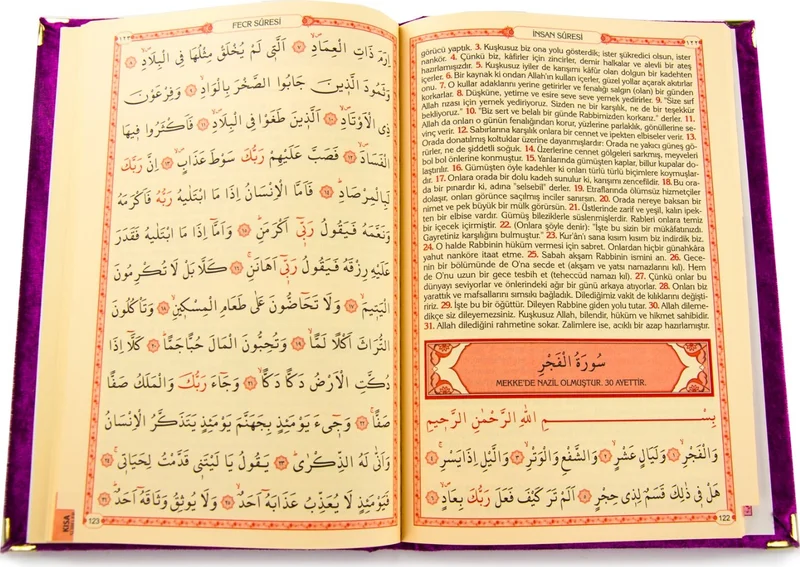 İNSAN SÛRESİ
١٢٢
görücü yaptık. 3. Kuşkusuz biz ona yolu gösterdik; ister şükredici olsun, ister
nankör. 4. Çünkü biz, kâfirler için zincirler, demir halkalar ve alevli bir ateş
hazırlamışızdır. 5. Kuşkusuz iyiler de karışımı kâfûr olan dolgun bir kadehten
içerler. 6. Bir kaynak ki ondan Allah'ın kulları içerler, güzel yollar açarak akıtırlar
onu. 7. O kullar adaklarını yerine getirirler ve fenalığı salgın (olan) bir günden
korkarlar. 8. Düşküne, yetime ve esire seve seve yemek yedirirler. 9. "Size sırf
Allah rızası için yemek yediriyoruz. Sizden ne bir karşılık, ne de bir teşekkür
bekliyoruz." 10. "Biz sert ve belalı bir günde Rabbimizden korkarız." derler. 11.
Allah da onları o günün fenalığından korur, yüzlerine parlaklık, gönüllerine se-
vinç verir. 12. Sabırlarına karşılık onlara bir cennet ve ipekten elbiseler verir. 13.
Orada donatılmış koltuklar üzerine dayanmışlardır: Orada ne yakıcı güneş gö-
rürler, ne de şiddetli soğuk. 14. Üzerlerine cennet gölgeleri sarkmış, meyveleri
bol bol önlerine konmuştur. 15. Yanlarında gümüşten kaplar, billur kupalar do-
laştırılır. 16. Gümüşten öyle kadehler ki onları türlü türlü biçimlere koymuşlar-
dır. 17. Onlara orada bir dolu kadeh sunulur ki, karışımı zencefildir. 18. Bu ora-
da bir pınardır ki, adına "selsebil" derler. 19. Etraflarında ölümsüz hizmetçiler
dolaşır, onları görünce saçılmış inciler sanırsın. 20. Orada nereye baksan bir
nimet ve pek büyük bir mülk görürsün. 21. Üstlerinde zarif ve yeşil, kalın ipek-
ten bir elbise vardır. Gümüş bileziklerle süslenmişlerdir. Rableri onlara temiz
bir içecek içirmiştir. 22. (Onlara şöyle denir): "İşte bu sizin bir mükâfatınızdı.
Gayretiniz karşılığını bulmuştur." 23. Kur'ân'ı sana kısım kısım biz indirdik biz.
24. O halde Rabbinin hüküm vermesi için sabret. Onlardan hiçbir günahkâra
yahut nanköre itaat etme. 25. Sabah akşam Rabbinin ismini an. 26. Gece-
nin bir bölümünde de O'na secde et (akşam ve yatsı namazlarını kıl). Hem
de O'nu uzun bir gece tesbih et (teheccüd namazı kıl). 27. Çünkü onlar bu
dünyayı seviyorlar ve önlerindeki ağır bir günü arkaya atıyorlar. 28. Onları biz
yarattık ve mafsallarını sımsıkı bağladık. Dilediğimiz vakit de kılıklarını değişti-
ririz. 29. İşte bu bir öğüttür. Dileyen Rabbine giden yolu tutar. 30. Allah dileme-
dikçe siz dileyemezsiniz. Kuşkusuz Allah, bilendir, hüküm ve hikmet sahibidir.
31. Allah dilediğini rahmetine sokar. Zalimlere ise, acıklı bir azap hazırlamıştır.
سُورَةُ الْفَجْرِ
MEKKE'DE NAZİL OLMUŞTUR. 30 AYETTİR.
بِسْمِ اللهِ الرَّحْمٰنِ الرَّحِيمِ
وَالْفَجْرِ ﴿١﴾ وَلَيَالٍ عَشْرٍ ﴿٢﴾ وَالشَّفْعِ وَالْوَتْرِ ﴿٣﴾ وَالَّيْلِ اِذَا يَسْرِ ﴿٤﴾
هَلْ فِي ذٰلِكَ قَسَمٌ لِذِي حِجْرٍ ﴿٥﴾ اَلَمْ تَرَ كَيْفَ فَعَلَ رَبُّكَ بِعَادٍ ﴿٦﴾
122
FECR SÛRESİ
١٢٣
اِرَمَ ذَاتِ الْعِمَادِ ﴿٧﴾ اَلَّتِي لَمْ يُخْلَقْ مِثْلُهَا فِي الْبِلَادِ ﴿٨﴾
وَثَمُودَ الَّذِينَ جَابُوا الصَّخْرَ بِالْوَادِ ﴿٩﴾ وَفِرْعَوْنَ
ذِي الْاَوْتَادِ ﴿١٠﴾ اَلَّذِينَ طَغَوْا فِي الْبِلَادِ ﴿١١﴾ فَاَكْثَرُوا فِيهَا
الْفَسَادَ ﴿١٢﴾ فَصَبَّ عَلَيْهِمْ رَبُّكَ سَوْطَ عَذَابٍ ﴿١٣﴾ اِنَّ رَبَّكَ
لَبِالْمِرْصَادِ ﴿١٤﴾ فَاَمَّا الْاِنْسَانُ اِذَا مَا ابْتَلٰيهُ رَبُّهُ فَاَكْرَمَهُ
وَنَعَّمَهُ فَيَقُولُ رَبِّي اَكْرَمَنِ ﴿١٥﴾ وَاَمَّا اِذَا مَا ابْتَلٰيهُ فَقَدَرَ
عَلَيْهِ رِزْقَهُ فَيَقُولُ رَبِّي اَهَانَنِ ﴿١٦﴾ كَلَّا بَلْ لَا تُكْرِمُونَ
الْيَتِيمَ ﴿١٧﴾ وَلَا تَحَاضُّونَ عَلٰى طَعَامِ الْمِسْكِينِ ﴿١٨﴾ وَتَاْكُلُونَ
التُّرَاثَ اَكْلًا لَمًّا ﴿١٩﴾ وَتُحِبُّونَ الْمَالَ حُبًّا جَمًّا ﴿٢٠﴾ كَلَّا اِذَا
دُكَّتِ الْاَرْضُ دَكًّا دَكًّا ﴿٢١﴾ وَجَاءَ رَبُّكَ وَالْمَلَكُ صَفًّا
صَفًّا ﴿٢٢﴾ وَجِيءَ يَوْمَئِذٍ بِجَهَنَّمَ يَوْمَئِذٍ يَتَذَكَّرُ الْاِنْسَانُ
وَاَنّٰى لَهُ الذِّكْرٰى ﴿٢٣﴾ يَقُولُ يَا لَيْتَنِي قَدَّمْتُ لِحَيَاتِي ﴿٢٤﴾
فَيَوْمَئِذٍ لَا يُعَذِّبُ عَذَابَهُ اَحَدٌ ﴿٢٥﴾ وَلَا يُوثِقُ وَثَاقَهُ اَحَدٌ ﴿٢٦﴾
123
KISA